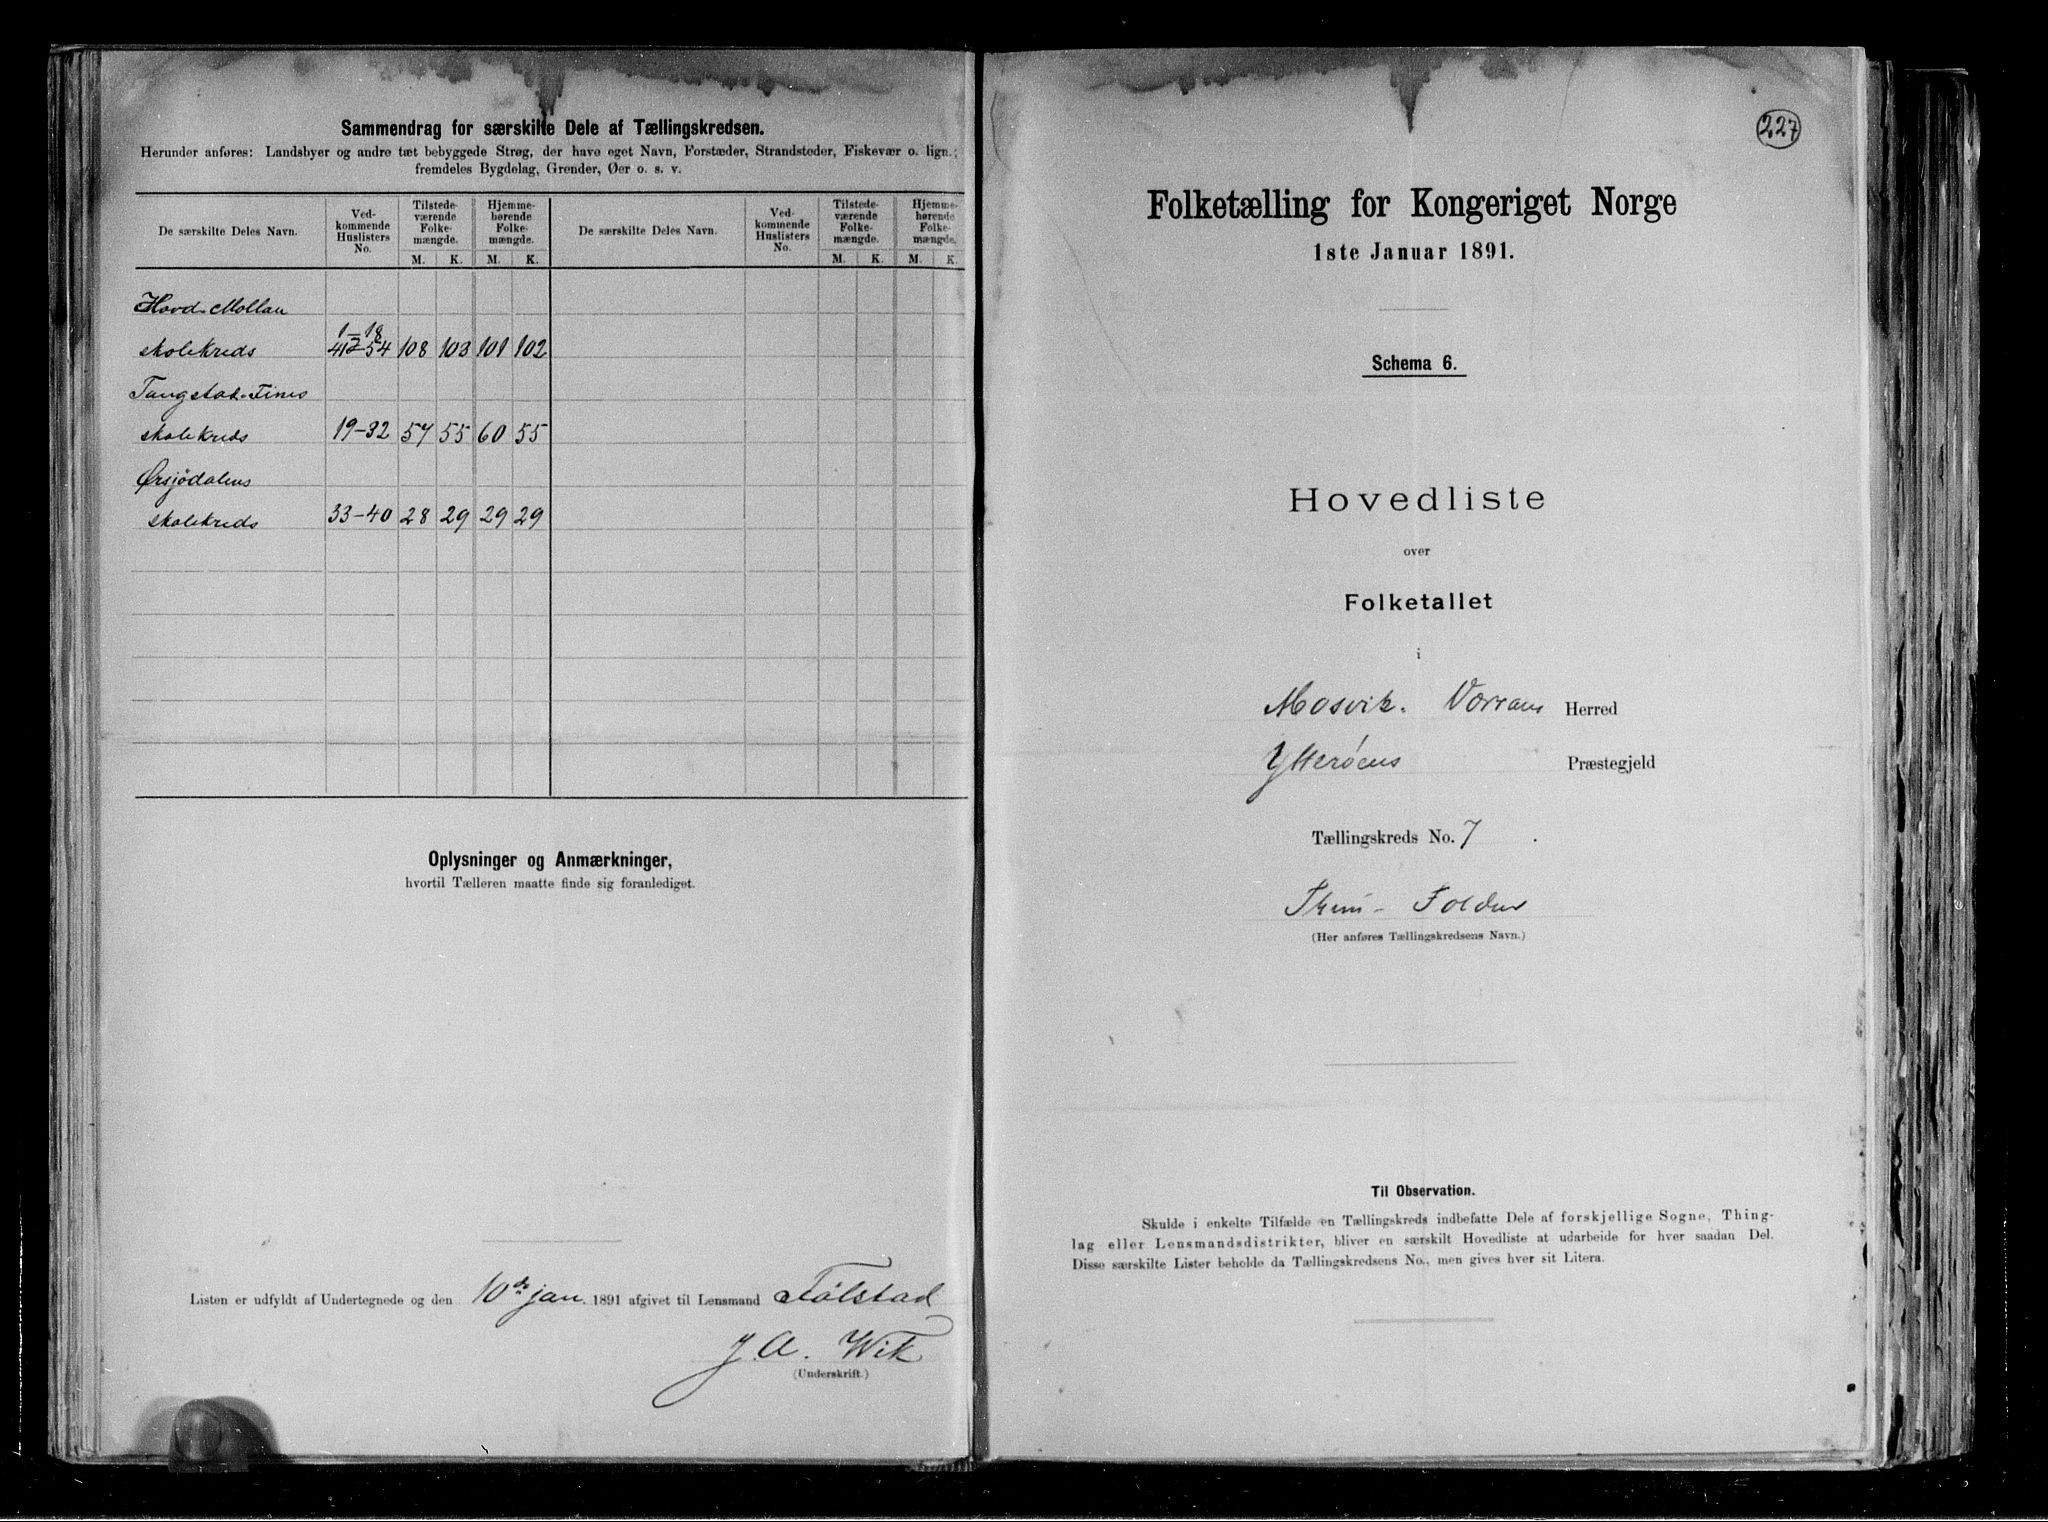 Sammendrag for særskilte Dele af Tællingskredsen.
Herunder anføres: Landsbyer og andre tæt bebyggede Strøg, der have eget Navn, Forstæder, Strandsteder, Fiskevær o. lign.;
fremdeles Bygdelag, Grender, Øer o. s. v.
De særskilte Deles Navn. Ved-kommende Huslisters No. Tilstede-værende Folke-mængde. Hjemme-hørende Folke-mængde. De særskilte Deles Navn. Ved-kommende Huslisters No. Tilstede-værende Folke-mængde. Hjemme-hørende Folke-mængde.
M. K. M. K. M. K. M. K.
Hovd-Mollan
1-18
skolekreds 41-54 108 103 101 102
Tangstad-Fines
skolekreds 19-32 57 55 60 55
Ørsjødalens
skolekreds 33-40 28 29 29 29
Oplysninger og Anmærkninger,
hvortil Tælleren maatte finde sig foranlediget.
Listen er udfyldt af Undertegnede og den 10de jan. 1891 afgivet til Lensmand Følstad
J. A. Wik
(Underskrift.)
227
Folketælling for Kongeriget Norge
1ste Januar 1891.
Schema 6.
Hovedliste
over
Folketallet
i
Mosvik. Værrans Herred
Ytterøens Præstegjeld
Tællingskreds No. 7.
Folden
(Her anføres Tællingskredsens Navn.)
Til Observation.
Skulde i enkelte Tilfælde en Tællingskreds indbefatte Dele af forskjellige Sogne, Thing-
lag eller Lensmandsdistrikter, bliver en særskilt Hovedliste at udarbeide for hver saadan Del.
Disse særskilte Lister beholde da Tællingskredsens No., men gives hver sit Litera.